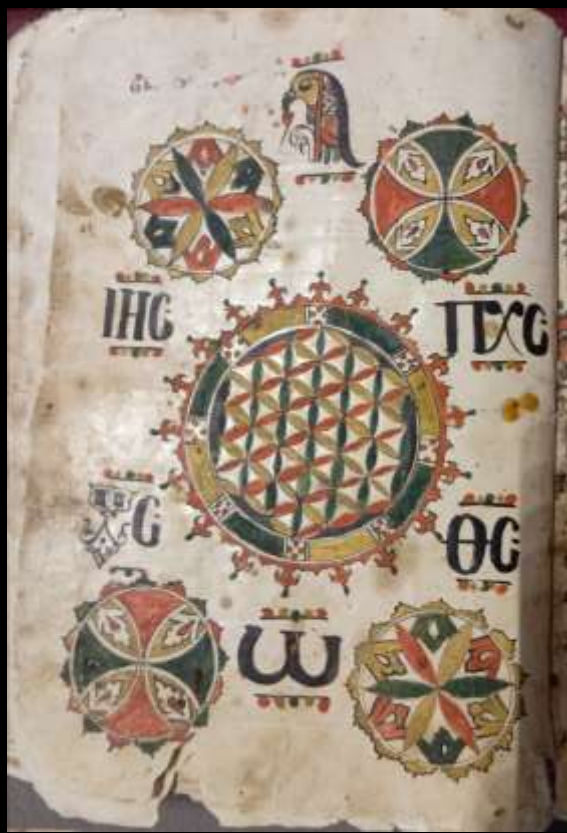 Ⲁ
ⲒⲎⲤ ⲠⲬⲤ
ⲨⲤ ⲐⲤ
Ⲱ